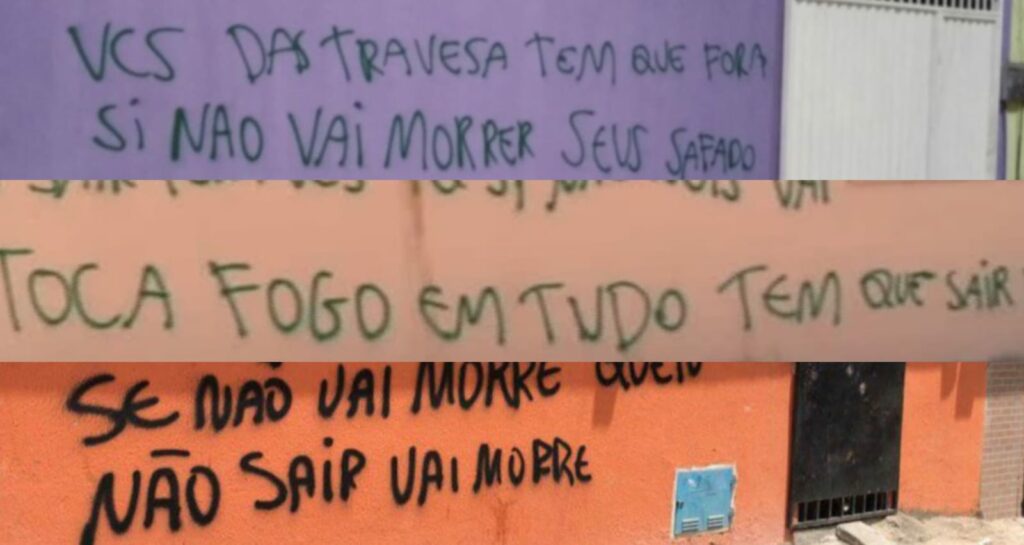 VCS DAS TRAVESA TEM QUE FORA
Si NAO VAi MORRER SEUS SAFADO
VAI
TOCA FOGO EM TUDO TEM QUE SAIR
SE NÃO VAI MORRE QUEM
NÃO SAIR VAI MORRE